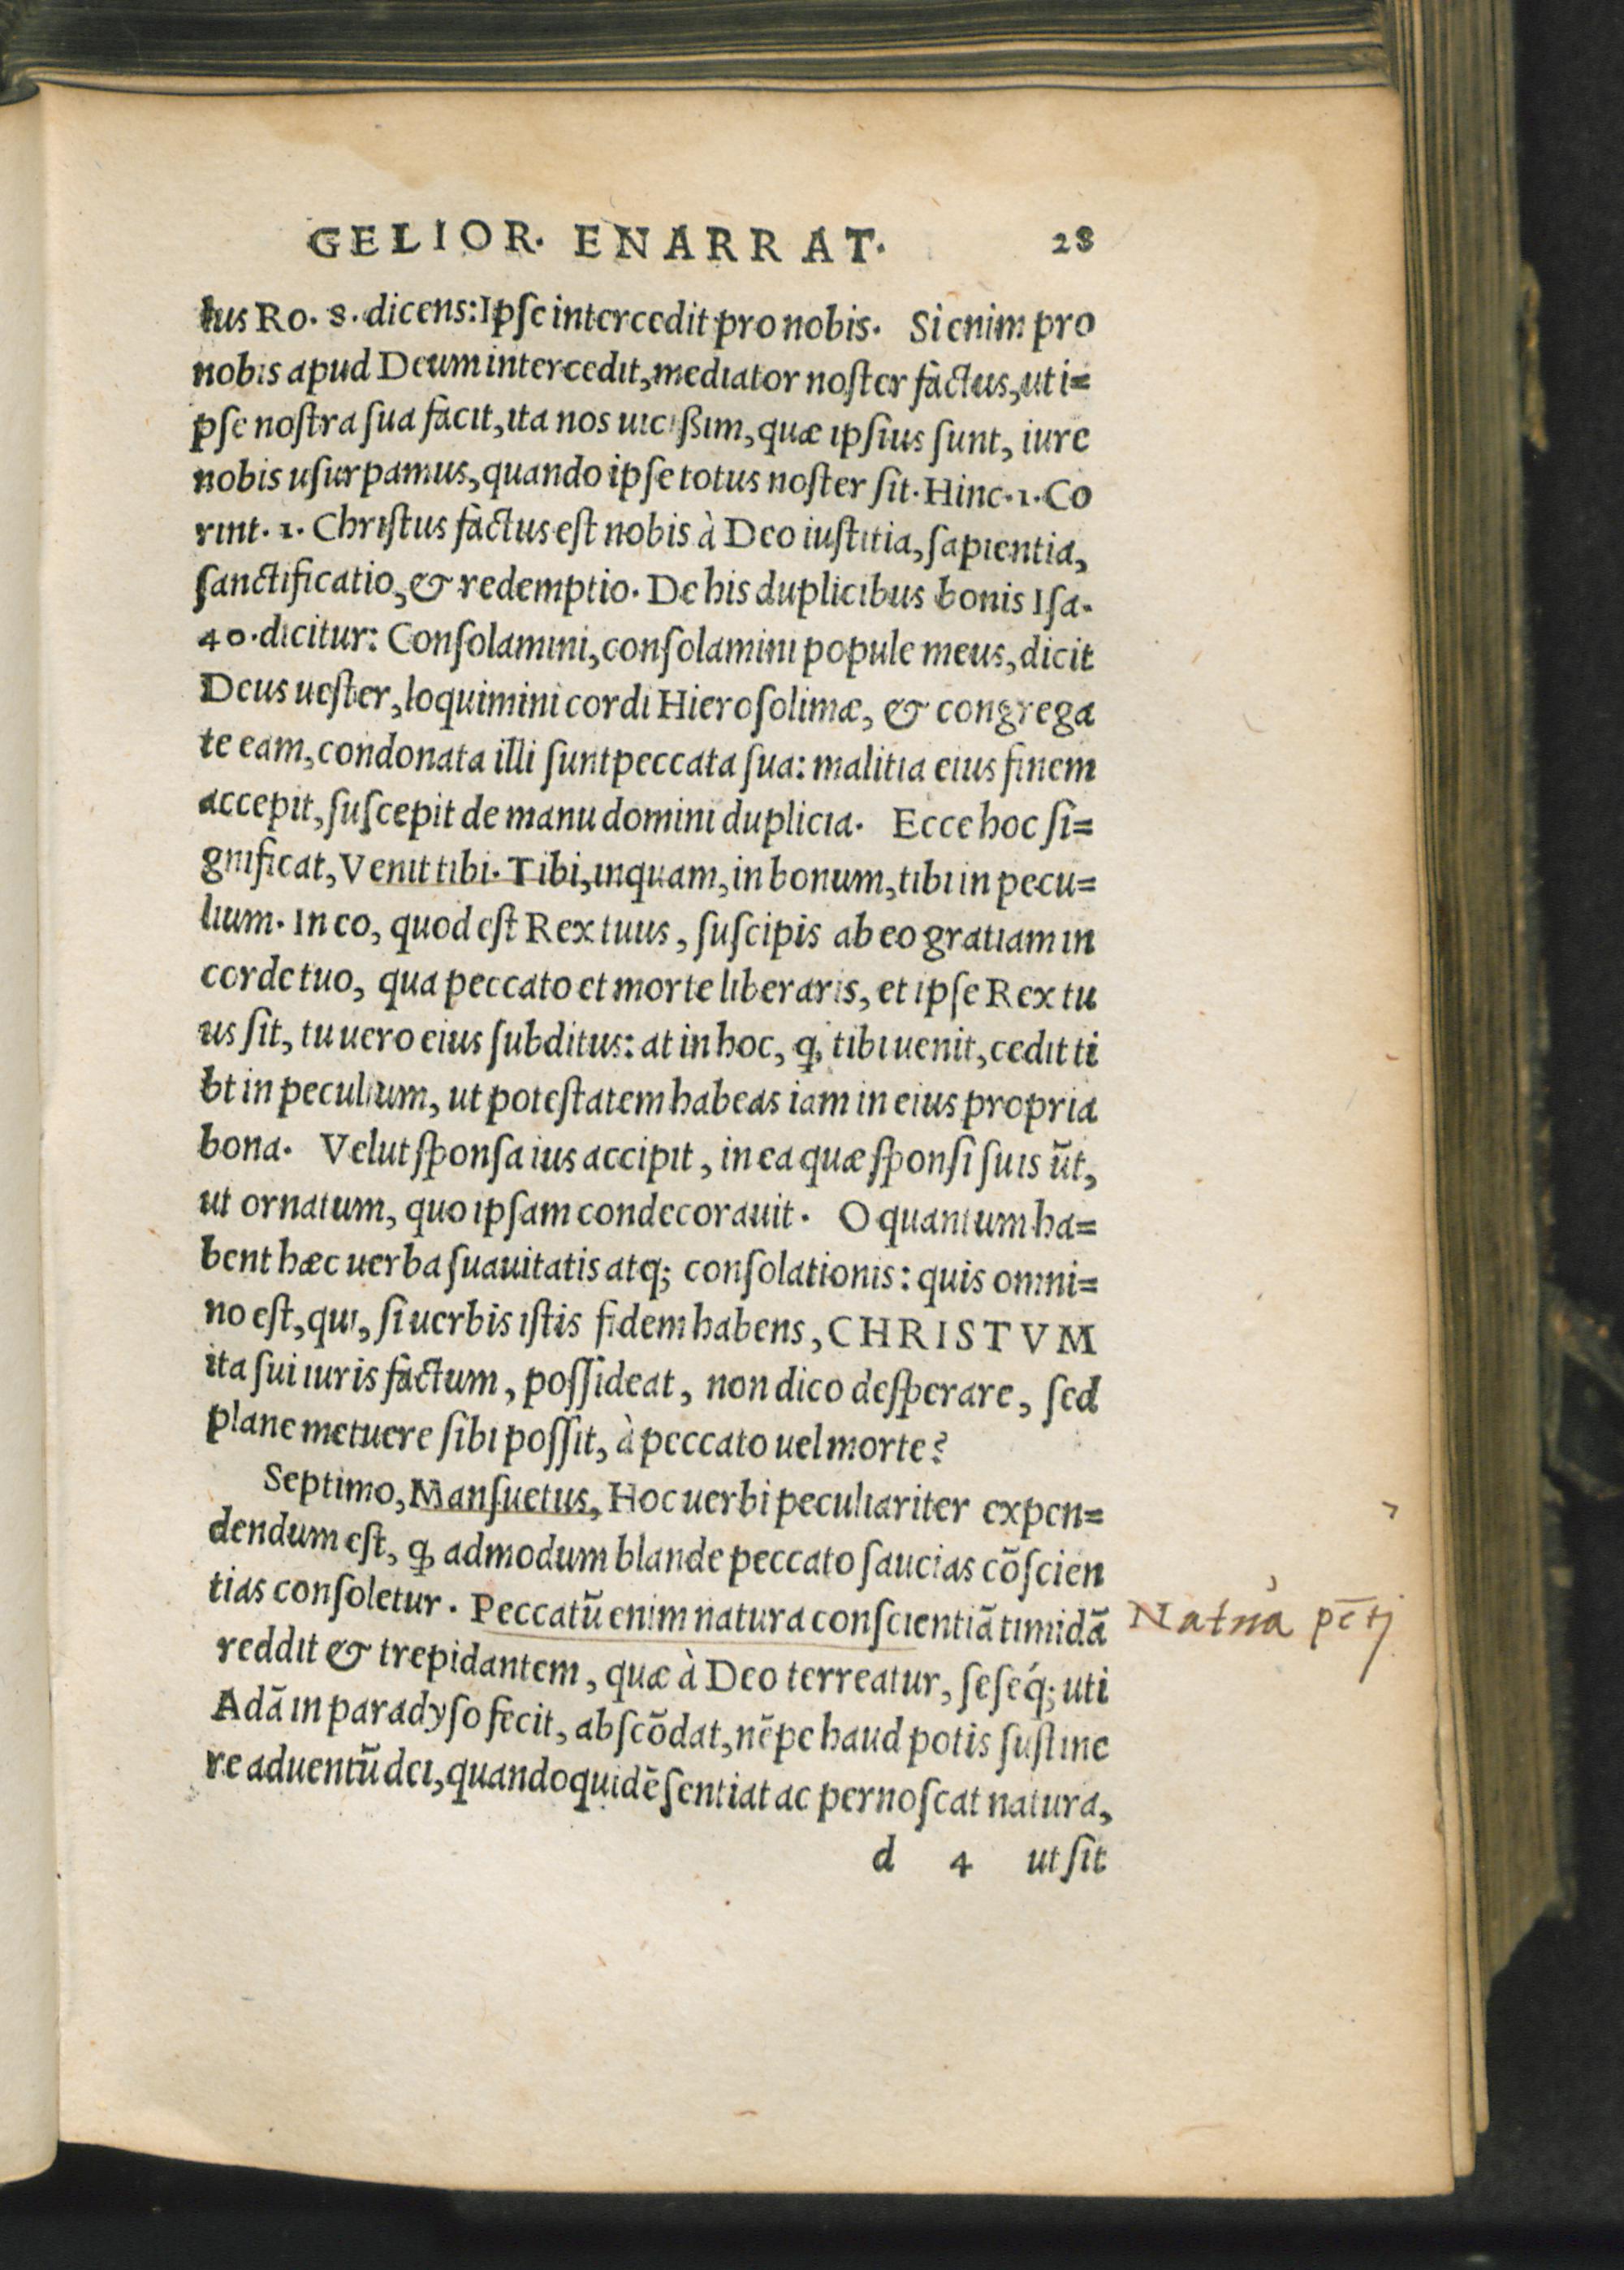 GELIOR. ENARRAT. 28
lus Ro. 8. dicens: Ipſe intercedit pro nobis. Si enim pro
nobis apud Deum intercedit, mediator noſter factus, ut i=
pſe noſtra ſua facit, ita nos uicißim, quæ ipſius ſunt, iure
nobis uſurpamus, quando ipſe totus noſter ſit. Hinc. 1. Co
rint. 1. Chriſtus factus eſt nobis à Deo iuſtitia, ſapientia,
ſanctificatio, & redemptio. De his duplicibus bonis Iſa.
40. dicitur: Conſolamini, conſolamini popule meus, dicit
Deus ueſter, loquimini cordi Hieroſolimæ, & congrega
te eam, condonata illi ſunt peccata ſua: malitia eius finem
accepit, ſuſcepit de manu domini duplicia. Ecce hoc ſi=
gnificat, Venit tibi. Tibi, inquam, in bonum, tibi in pecu=
lium. In eo, quod eſt Rex tuus, ſuſcipis ab eo gratiam in
corde tuo, qua peccato et morte liberaris, et ipſe Rex tu
us ſit, tu uero eius ſubditus: at in hoc, ꝙ tibi uenit, cedit ti
bi in peculium, ut poteſtatem habeas iam in eius propria
bona. Velut ſponſa ius accipit, in ea quæ ſponſi ſuis ũt,
ut ornatum, quo ipſam condecorauit. O quantum ha=
bent hæc uerba ſuauitatis atq; conſolationis: quis omni=
no eſt, qui, ſi uerbis iſtis fidem habens, CHRISTVM
ita ſui iuris factum, poſſideat, non dico deſperare, ſed
plane metuere ſibi poſſit, à peccato uel morte?
Septimo, Manſuetus, Hoc uerbi peculiariter expen=
dendum eſt, ꝙ admodum blande peccato ſaucias cõſcien
tias conſoletur. Peccatũ enim natura conſcientiã timidã
Natura pctj
reddit & trepidantem, quæ à Deo terreatur, ſeſeq́; uti
Adã in paradyſo fecit, abſcõdat, nẽpe haud potis ſuſtine
re aduentũ dei, quandoquidẽ ſentiat ac pernoſcat natura,
d 4 ut ſit